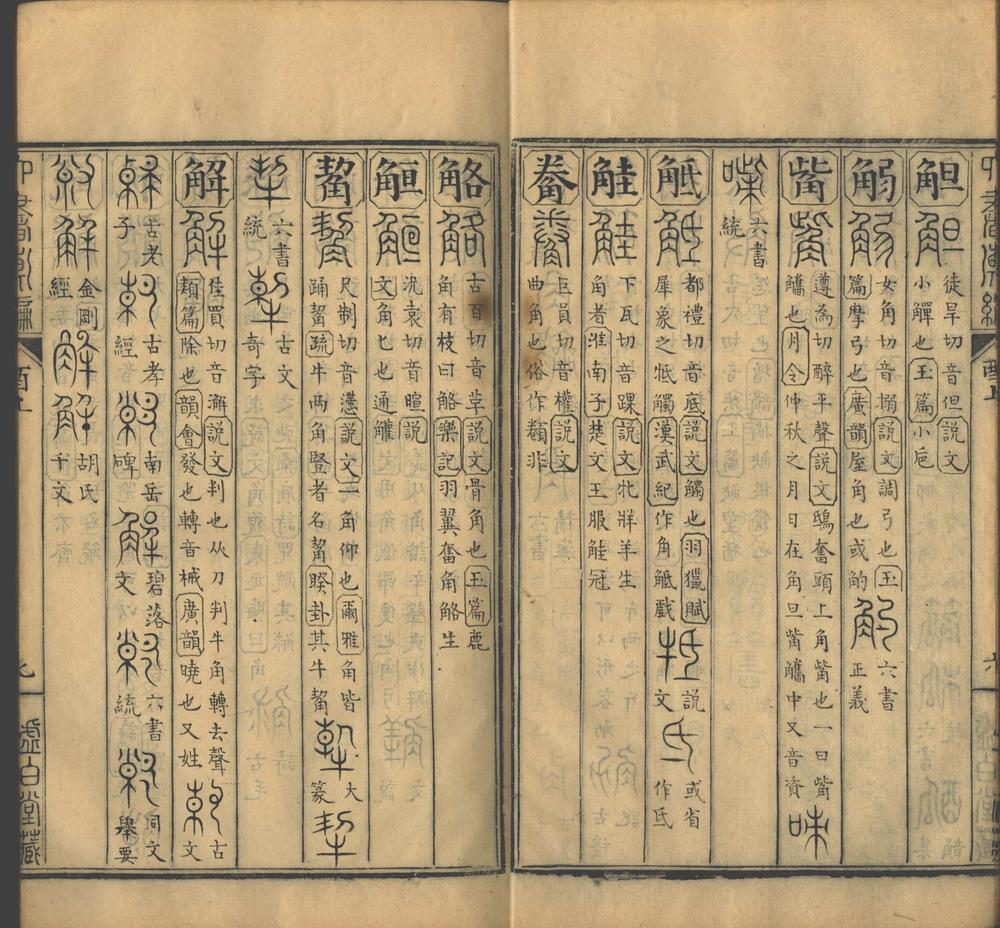 觛 徒旱切音但說文
小觶也玉篇小巵
觸 女角切音搦說文調弓也玉
篇摩弓也廣韻屋角也或的 六書
正義
觜 遵為切醉平聲說文鴟奮頭上角觜也一曰觜
觿也月令仲秋之月日在角旦觜觿中又音資
六書
統
觝 都禮切音底說文觸也羽獵賦
犀象之牴觸漢武紀作角觝戲 說
文 或省
作氐
觟 下瓦切音踝說文牝牂羊生
角者淮南子楚文王服觟冠
觠 巨員切音權說文
曲角也俗作䫇非
觡 古百切音革說文骨角也玉篇鹿
角有枝曰觡樂記羽翼奮角觡生
觛 況袁切音暄說
文角匕也通觿
觢 尺制切音懘說文一角仰也爾雅角皆
踊觢疏牛兩角豎者名觢睽卦其牛觢 大
篆
六書
統 古文
奇字
解 佳買切音澥說文判也从刀判牛角轉去聲
類篇除也韻會發也轉音械廣韻曉也又姓 古
文
古老
子 古孝
經 南岳
碑 碧落
文 六書
統 同文
舉要
金剛
經 胡氏 千文
酉上
六
七
虛白堂藏